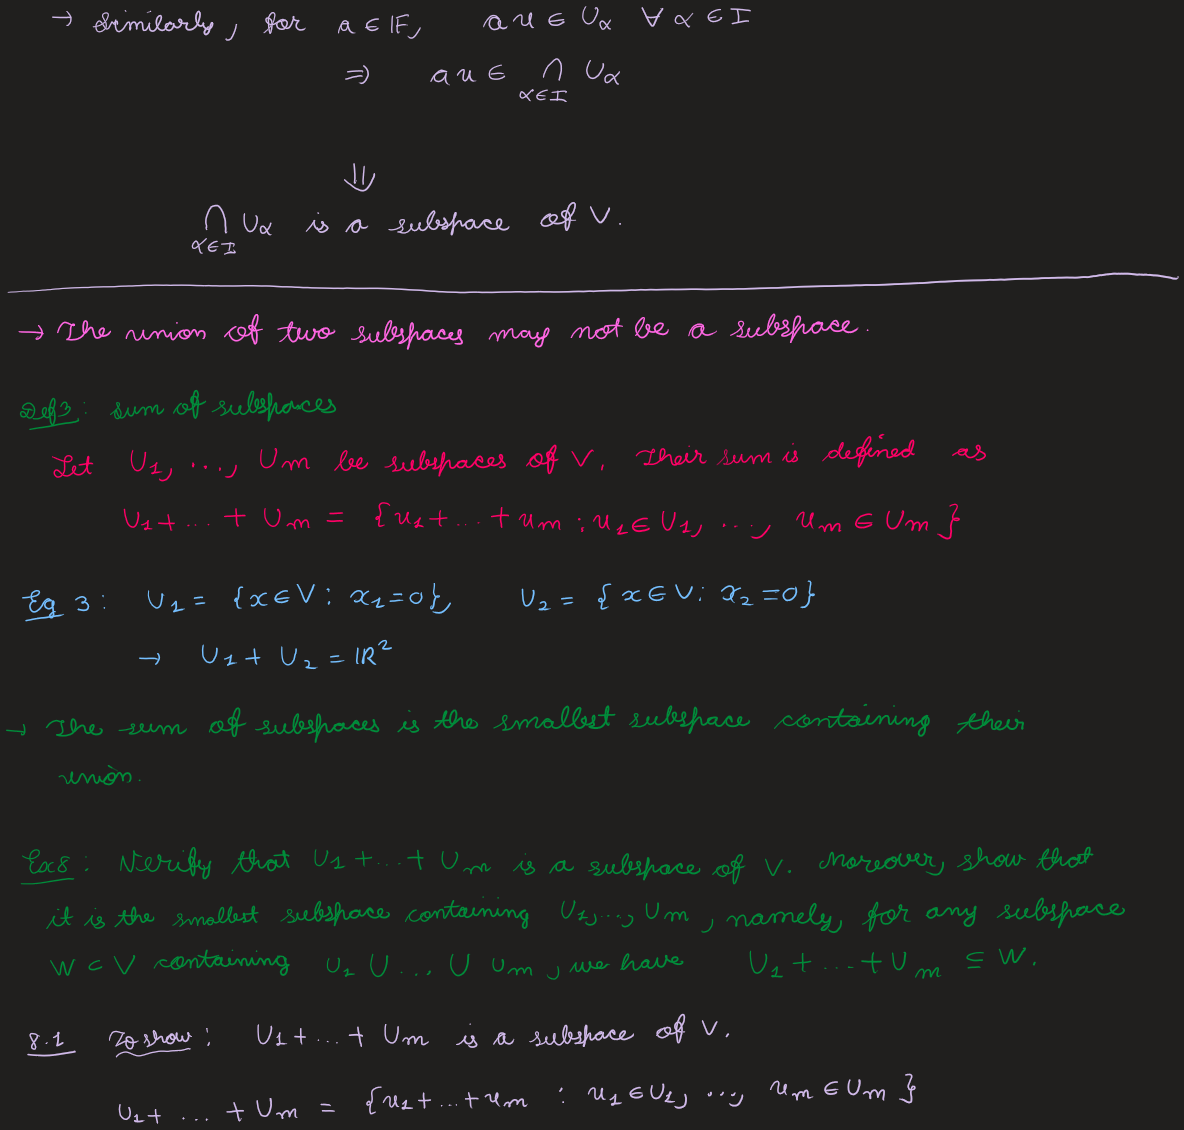 → Similarly, for a ∈ 𝔽, au ∈ U_α ∀ α ∈ I
⇒ au ∈ ⋂_{α∈I} U_α
⇓
⋂_{α∈I} U_α is a subspace of V.
→ The union of two subspaces may not be a subspace.
Def 3: sum of subspaces
Let U_1, ..., U_m be subspaces of V. Their sum is defined as
U_1 + ... + U_m = {u_1 + ... + u_m : u_1 ∈ U_1, ..., u_m ∈ U_m}
Eg 3: U_1 = {x ∈ V : x_1 = 0}, U_2 = {x ∈ V : x_2 = 0}
→ U_1 + U_2 = ℝ^2
→ The sum of subspaces is the smallest subspace containing their
union.
Ex8: Verify that U_1 + ... + U_m is a subspace of V. Moreover, show that
it is the smallest subspace containing U_1, ..., U_m, namely, for any subspace
W ⊂ V containing U_1 ∪ ... ∪ U_m, we have U_1 + ... + U_m ⊆ W.
8.1 To show: U_1 + ... + U_m is a subspace of V.
U_1 + ... + U_m = {u_1 + ... + u_m : u_1 ∈ U_1, ..., u_m ∈ U_m}